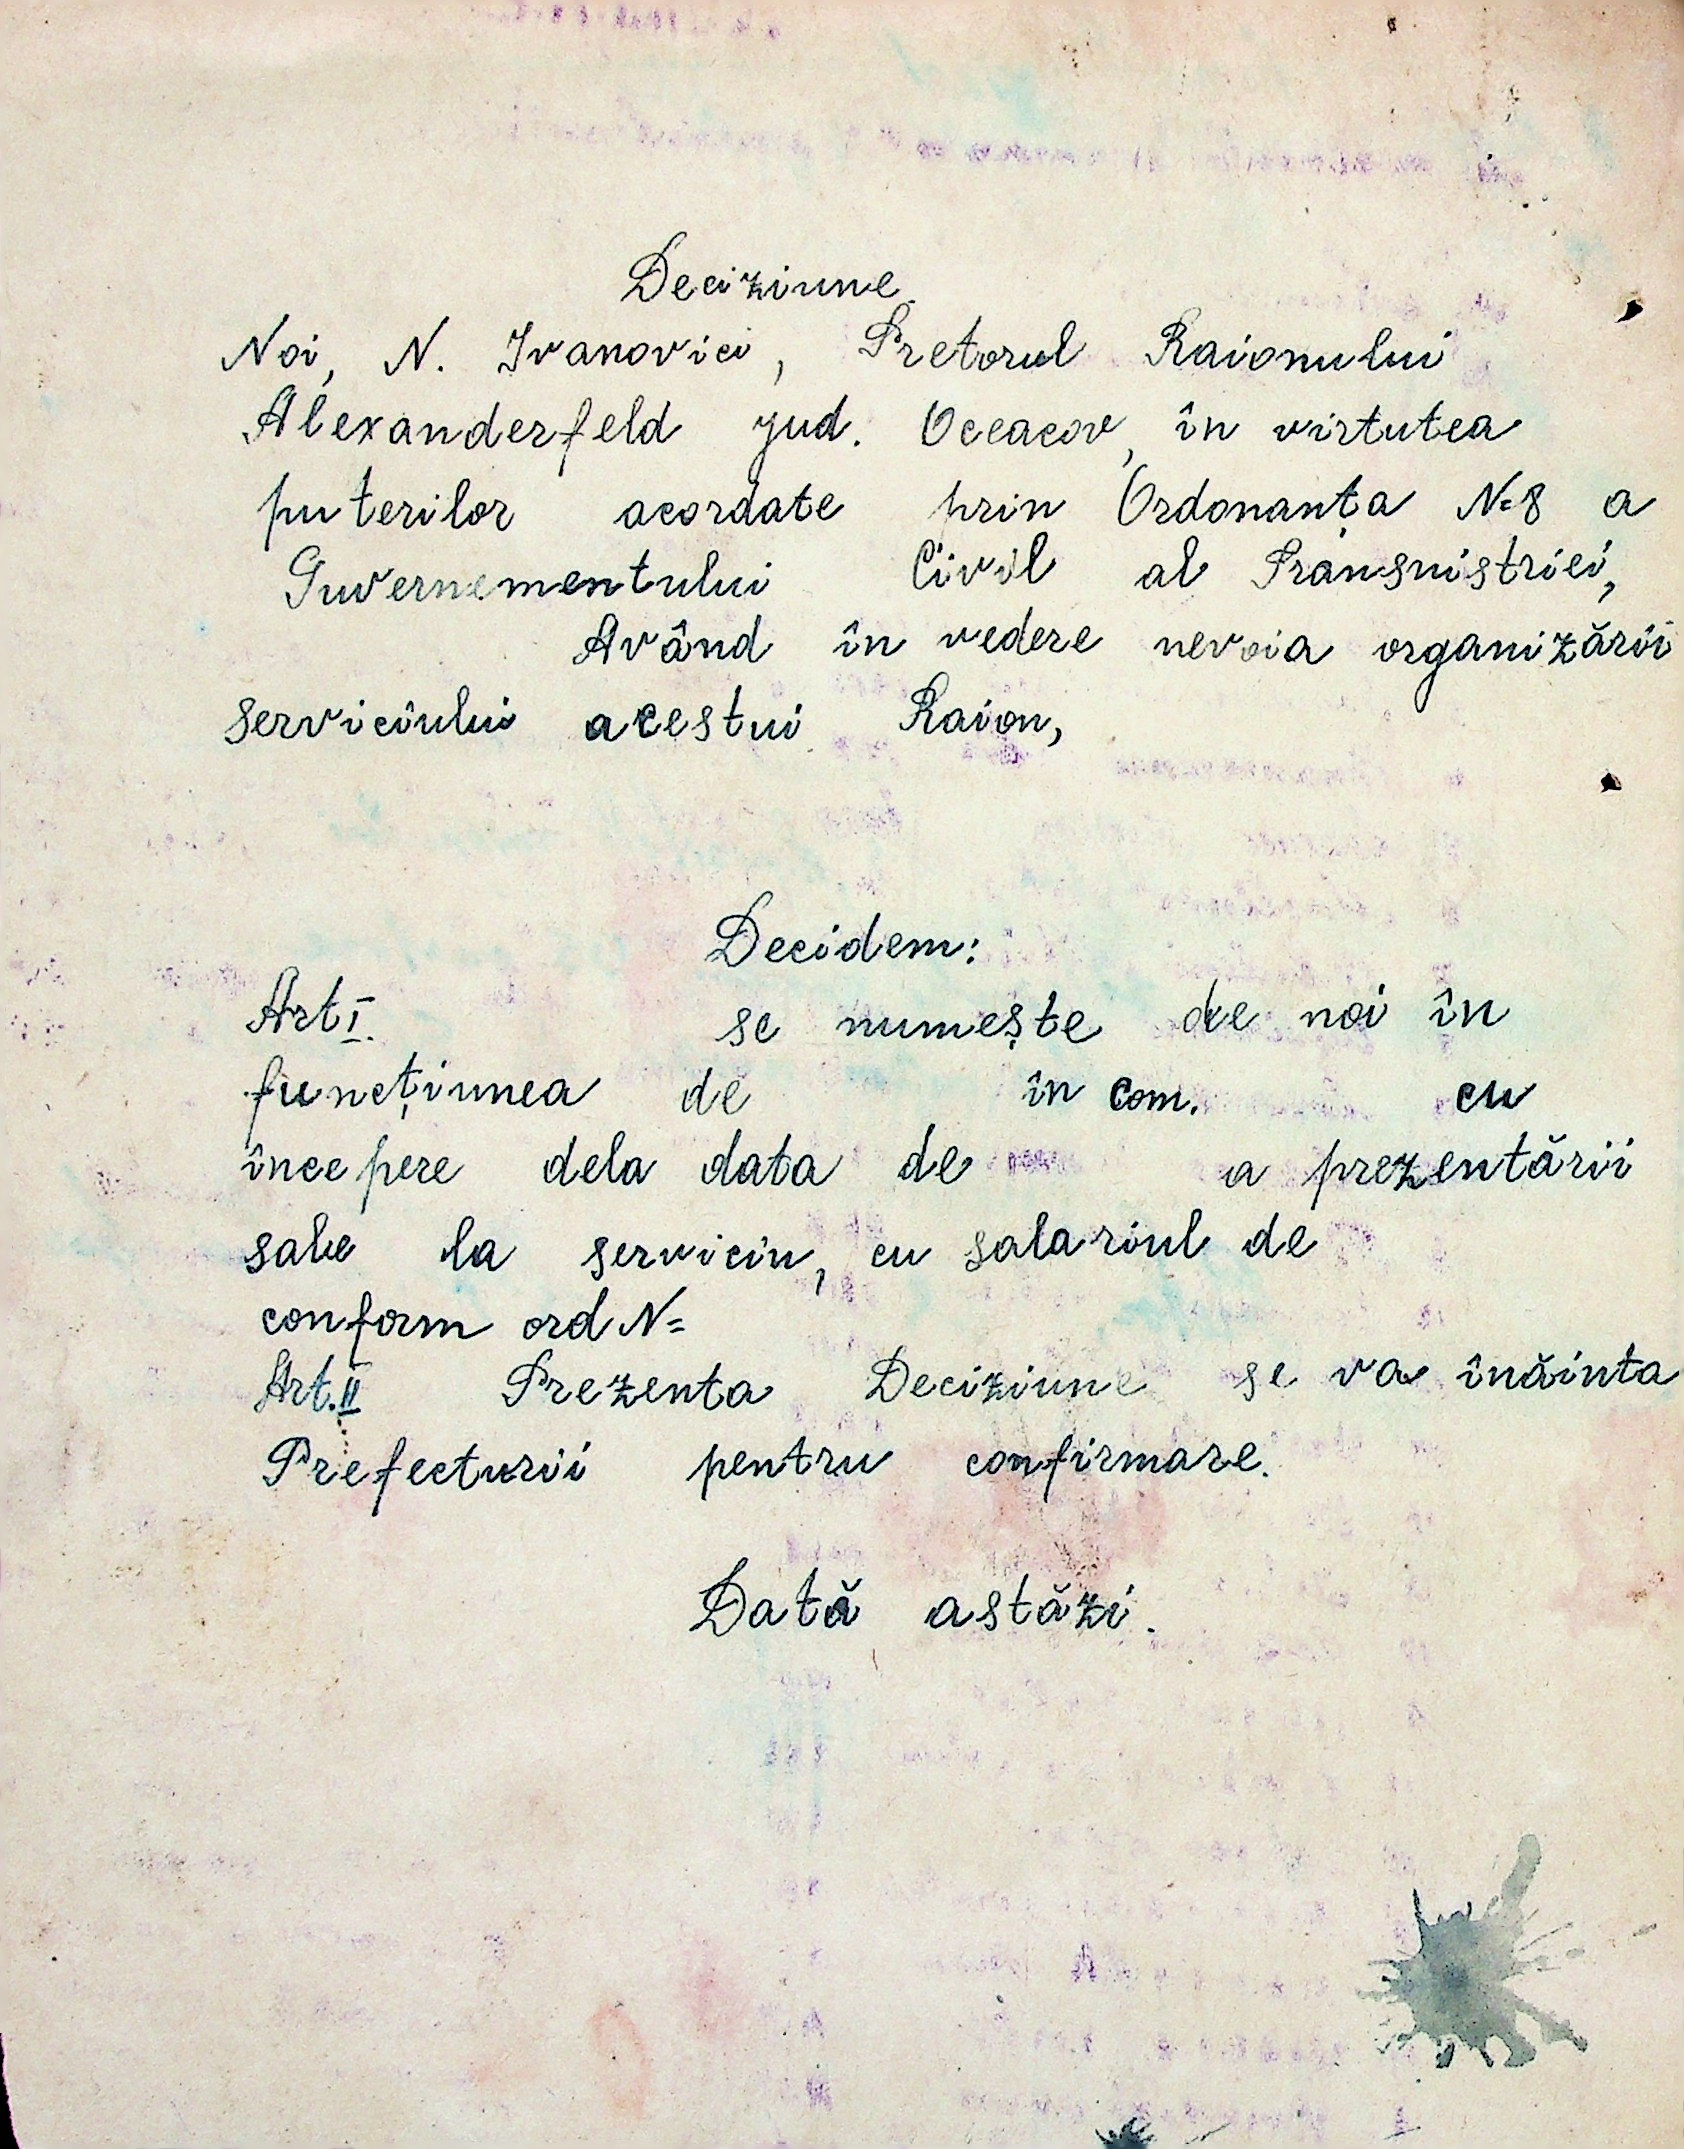 Deciziune
Noi, N. Ivanovici, Pretorul Raionului
Alexanderfeld jud. Oceacov, în virtutea
puterilor acordate prin Ordonanța N=8 a
Guvernementului Civil al Transnistriei,
Având în vedere nevoia organizării
serviciului acestui Raion,
Decidem:
Art I. se numește de noi în
funcțiunea de în com. cu
începere dela data de a prezentării
sale la serviciu, cu salariul de
conform ord N=
Art. II Prezenta Deciziune se va înăinta
Prefecturii pentru confirmare.
Dată astăzi.